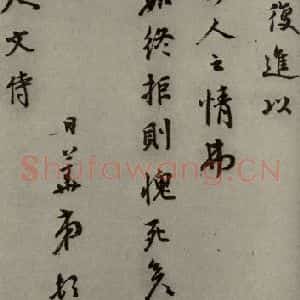 復進以
人之情弗
終拒則愧死矣
日華弟頓
文侍
Shufawang.CN